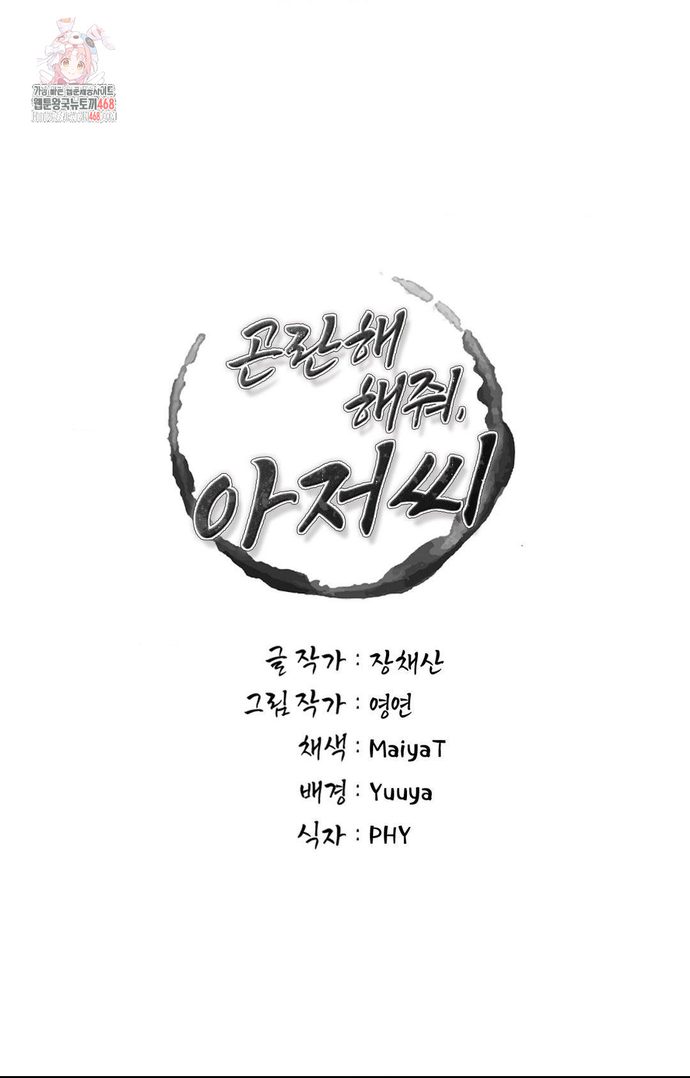 가장 빠른 웹툰제공사이트
웹툰왕국뉴토끼468
곤란해
해줘,
아저씨
글 작가 : 장채산
그림 작가 : 영연
채색 : MaiyaT
배경 : Yuuya
식자 : PHY